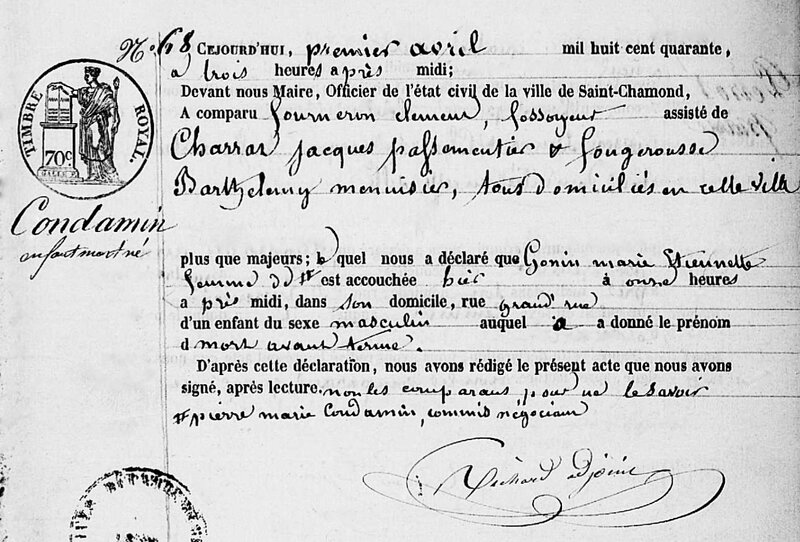 N.º 68 CEJOURD'HUI, premier avril mil huit cent quarante,
a trois heures après midi;
Devant nous Maire, Officier de l'état civil de la ville de Saint-Chamond,
A comparu fourneron clement, fossoyeur assisté de
Charrat jacques passementier & fougerousse
Barthelemy menuisier, tous domiciliés en cette ville
TIMBRE ROYAL.
70c
Condamin
enfant mort né
plus que majeurs; lequel nous a déclaré que Gonin marie Etiennette
femme dd# est accouchée hier à onze heures
a près midi, dans son domicile, rue grand'rue
d'un enfant du sexe masculin auquel a donné le prénom
d mort avant terme.
D'après cette déclaration, nous avons rédigé le présent acte que nous avons
signé, après lecture. non les comparans, pour ne le savoir
# pierre marie Condamin, commis négociant
Richard adjoint